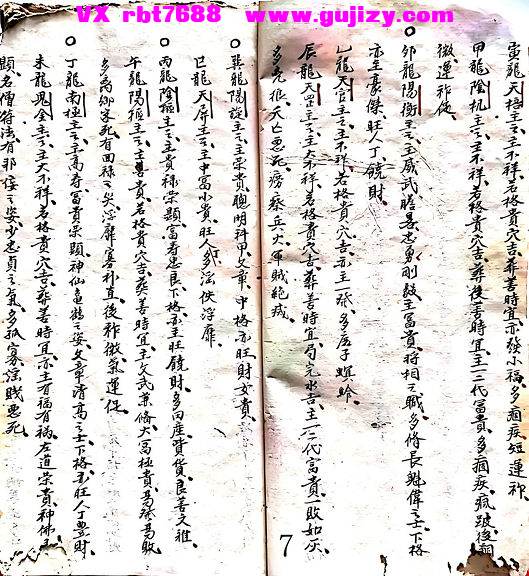 VX rbt7688 www.gujizy.com
寅龍天棓主之主不祥若格貴穴吉葬善時宜亦發小福多痼疾短運祚
甲龍陰机主之主不祥若格貴穴吉葬後善時宜主一二代富貴多痼疾瘋跛後
微運祚促
卯龍陽衡主之主威武膽畧忠勇剛毅主富貴將相之職多脩長魁偉之士下格
亦至豪傑旺人丁饒財
乙龍天官主之主不祥若格貴穴吉亦主一發多居子螟蛉
辰龍天罡主之主大不祥若格貴穴吉葬善時宜勾完水吉主一二代富貴一敗如灰
多克狠夭亡惡死癆瘵兵火軍賊絕戒
巽龍陽璇主之主榮貴聰明科甲文章中格亦旺財女貴
巳龍天屏主之主中富小貴旺人多淫佚浮靡
丙龍陰樞主之主貴祿榮顯富壽忠良下格亦主旺饒財多田產貲貨良善文雅
午龍陽樞主之主貴若格貴穴吉葬善時宜主文武業脩大富極貴易發易敗
多為鄉客死有回祿之災浮靡寡朴直後祚微氣運促
丁龍南極主之主高壽富貴榮顯神仙龜鶴之姿文章清高之士下格亦旺人丁豊財
未龍鬼金主之主大不祥若格貴穴吉葬善時宜亦主有福有禍左道榮貴神佛
顯名僧符法有邪佞之姿少忠貞之氣多孤寡淫賤惡死
7